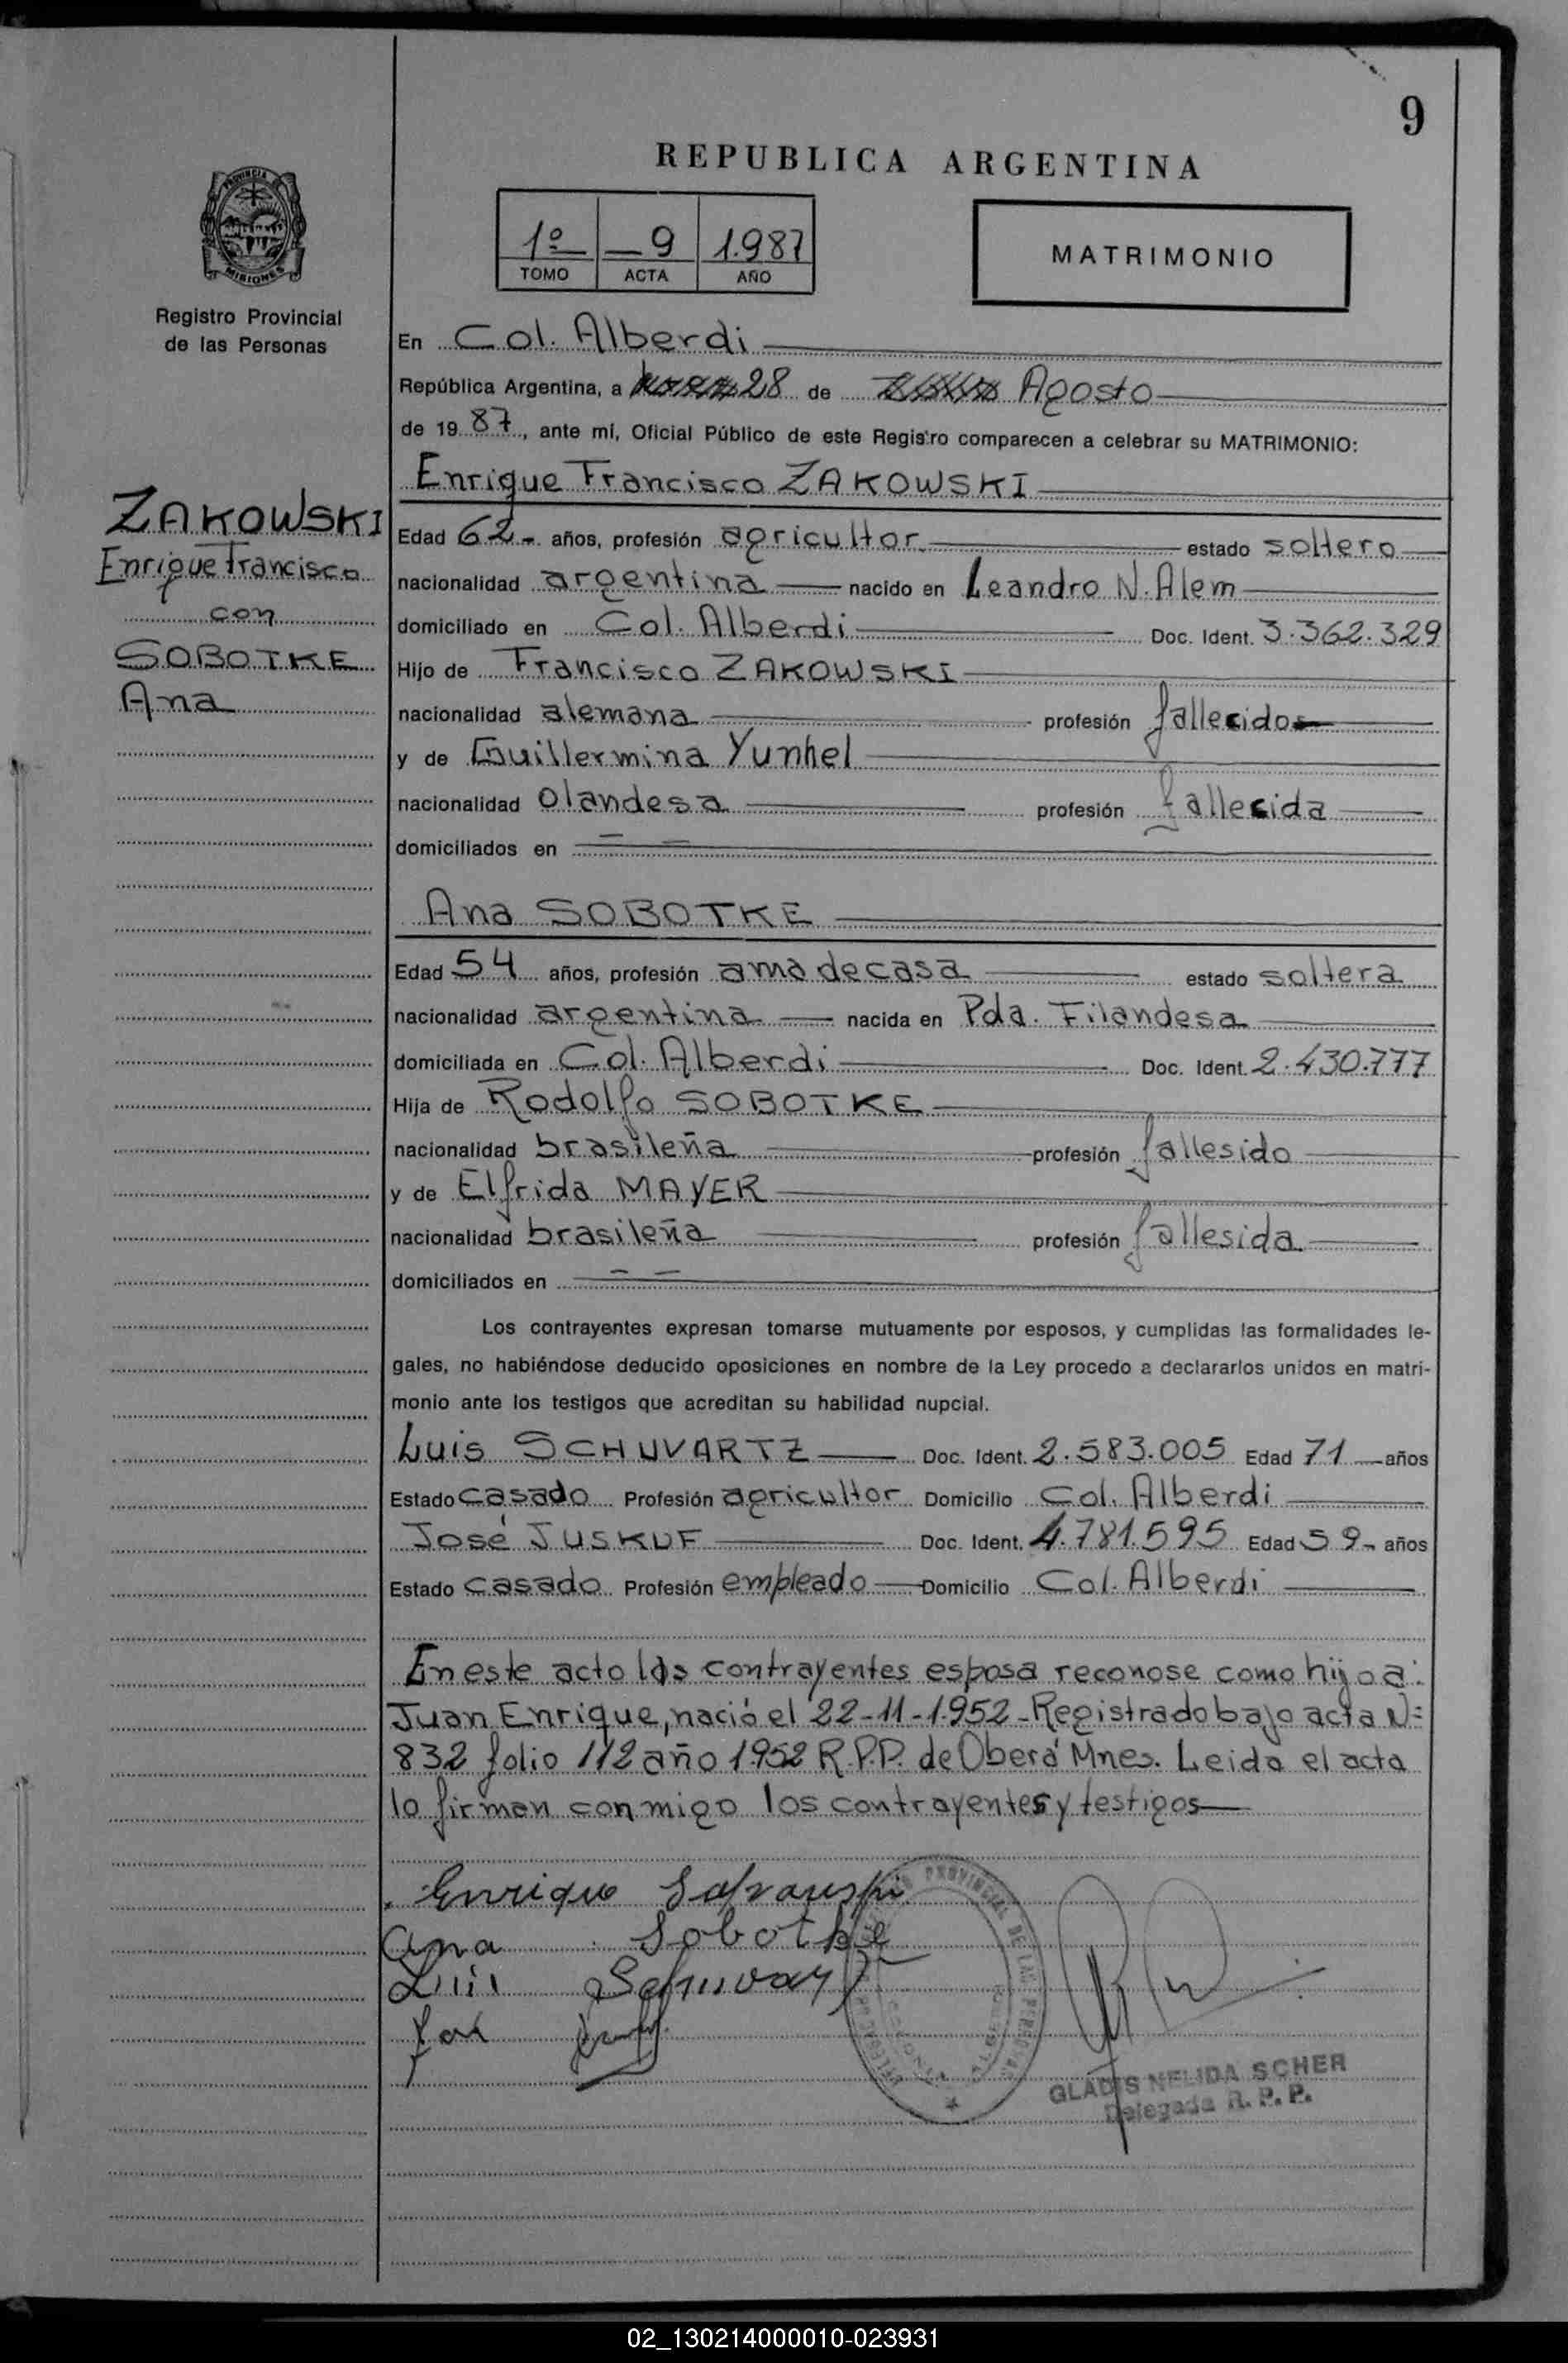 9
REPUBLICA ARGENTINA
PROVINCIA DE
MISIONES
1º — 9 1.987
TOMO ACTA AÑO
MATRIMONIO
Registro Provincial
de las Personas
En Col. Alberdi
República Argentina, a 28 de Agosto
de 19 87, ante mí, Oficial Público de este Registro comparecen a celebrar su MATRIMONIO:
Enrique Francisco ZAKOWSKI
ZAKOWSKI
Enrique Francisco
con
SOBOTKE
Ana
Edad 62- años, profesión agricultor estado soltero
nacionalidad argentina nacido en Leandro N. Alem
domiciliado en Col. Alberdi Doc. Ident. 3.362.329
Hijo de Francisco ZAKOWSKI
nacionalidad alemana profesión fallecido
y de Guillermina Yunhel
nacionalidad olandesa profesión fallecida
domiciliados en = =
Ana SOBOTKE
Edad 54 años, profesión ama de casa estado soltera
nacionalidad argentina nacida en Pda. Filandesa
domiciliada en Col. Alberdi Doc. Ident. 2.430.777
Hija de Rodolfo SOBOTKE
nacionalidad brasileña profesión fallesido
y de Elfrida MAYER
nacionalidad brasileña profesión fallesida
domiciliados en = =
Los contrayentes expresan tomarse mutuamente por esposos, y cumplidas las formalidades le-
gales, no habiéndose deducido oposiciones en nombre de la Ley procedo a declararlos unidos en matri-
monio ante los testigos que acreditan su habilidad nupcial.
Luis SCHUVARTZ Doc. Ident. 2.583.005 Edad 71 años
Estado casado Profesión agricultor Domicilio Col. Alberdi
José JUSKUF Doc. Ident. 4.781.595 Edad 59- años
Estado casado Profesión empleado Domicilio Col. Alberdi
En este acto los contrayentes esposa reconose como hijo a:
Juan Enrique, nació el 22-11-1.952-Registrado bajo acta N=
832 folio 112 año 1952 R.P.P. de Oberá Mnes. Leida el acta
lo firman conmigo los contrayentes y testigos
Enrique
Ana Sobotke
Luis
GLADIS NELIDA SCHER
Delegada R. P. P.
02_130214000010-023931